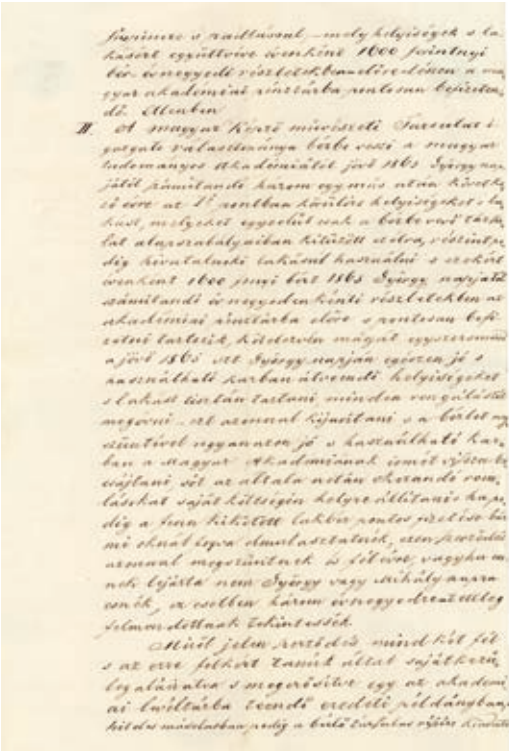 s helyiségek s la-
kásért együttvéve évenként 1600 forintnyi
bér évnegyedi részletekben előre a ma-
gyar akadémiai pénztárba pontosan befizeten-
dő. Ellenben
II. A magyar Képző művészeti Társulat i-
gazgató választmánya bérbe veszi a magyar
tudományos Akadémiától jövő 1865 György nap-
jától számítandó három egymás után követke-
ző évre az I. pontban körülírt helyiségeket s la-
kást, melyeket egyedül csak a bérbe vevő társu-
lat alapszabályaiban kitűzött czélra, részint pe-
dig hivatalnoki lakásul használni s ezekért
évenként 1600 frtnyi bért 1865 György napjától
számítandó évnegyedenkénti részletekben az
akadémiai pénztárba előre s pontosan befi-
zetni tartozik, kötelezvén magát egyszersmind
a jövő 1865 Szt György napján egészen jó s
használható karban átveendő helyiségeket
s lakást tisztán tartani minden rongálástól
megóvni azonnal kijavítani s a bérlet meg
szüntével ugyanazon jó s használható kar-
ban a Magyar Akadémiának ismét vissza
sőt az általa netán okozandó rom-
lásokat saját költségén helyre állítani s ha pe-
dig a fenn kikötött lakbér pontos fizetése bár
mi oknál fogva elmulasztatnék, ezen szerződés
azonnal megszűntnek és fél évre, vagy ha en-
nek lejárta nem György vagy Mihály napra
esnék, ez esetben három évnegyedre
felmondottnak tekintessék.
Miről jelen szerződés mind két fél
s az erre felkért tanúk által sajátkezű-
leg aláíratva s megerősítve egy az akadémi-
ai levéltárba teendő eredeti példányban,
hiteles másolatban pedig a bérlő társulat részére kiadatott